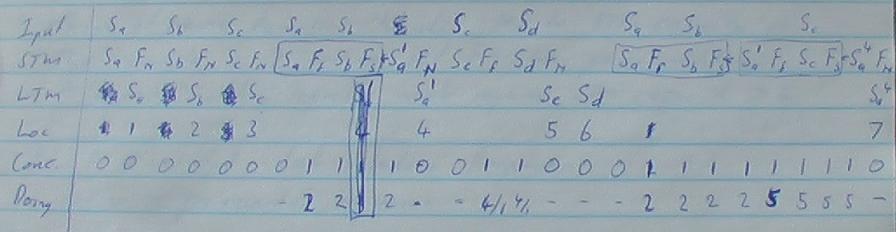 Input Sa Sb Sc Sa Sb Sc Sd Sa Sb Sc
STM Sa FN Sb FN Sc FN Sa Ff Sb Sa' FN Sc Ff Sd FN Sa Ff Sb Sa' Ff Sc Sa4 FN
LTM Sa Sb Sc Sa' Sc Sd Sa4
Loc 1 2 3 4 5 6 7
Conc. 0 0 0 0 0 0 0 1 1 1 1 0 0 1 1 0 0 0 1 1 1 1 1 1 1 1 0
Doing - 2 2 2 - - 4/1 4/1 - - - 2 2 2 2 5 5 5 5 -